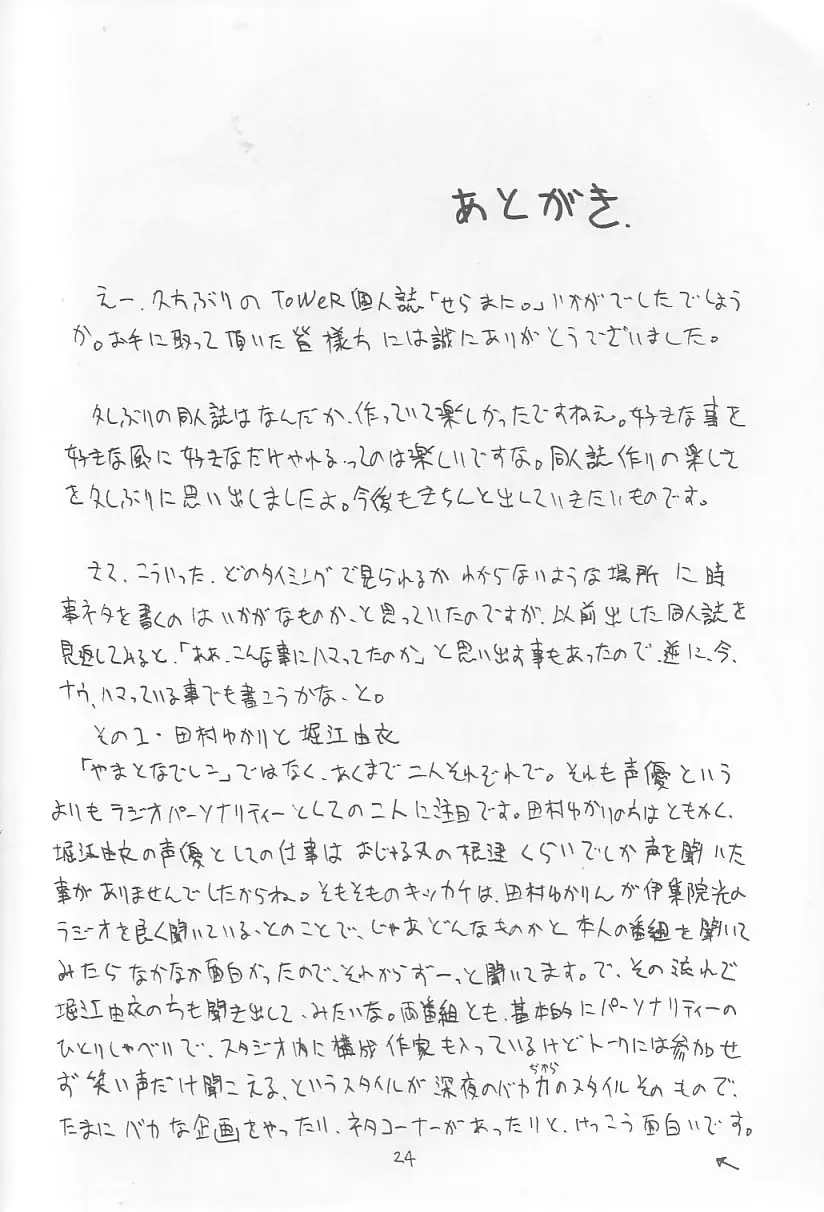 あとがき.
えー、久方ぶりのToWeR個人誌「せらまに。」いかがでしたでしょう
か。お手に取って頂いた皆様方には誠にありがとうございました。
久しぶりの同人誌はなんだか、作っていて楽しかったですねえ。好きな事を
好きな風に好きなだけやれる、ってのは楽しいですな。同人誌作りの楽しさ
を久しぶりに思い出しましたよ。今後もきちんと出していきたいものです。
さて、こういった、どのタイミングで見られるかわからないような場所に時
事ネタを書くのはいかがなものか、と思っていたのですが、以前出した同人誌を
見返してみると、「ああ、こんな事にハマってたのか」と思い出す事もあったので、逆に、今、
ナウ、ハマっている事でも書こうかな、と。
その1・田村ゆかりと堀江由衣
「やまとなでしこ」ではなく、あくまで二人それぞれで。それも声優という
よりもラジオパーソナリティーとしての二人に注目です。田村ゆかりの方はともかく、
堀江由衣の声優としての仕事はおじゃる丸の くらいでしか声を聞いた
事がありませんでしたからね。そもそものキッカケは、田村ゆかりんが伊集院光の
ラジオを良く聞いている、とのことで、じゃあどんなものかと本人の番組を聞いて
みたらなかなか面白かったので、それからずーっと聞いてます。で、その流れで
堀江由衣のも聞き出して、みたいな。両番組とも、基本的にパーソナリティーの
ひとりしゃべりで、スタジオ内に構成作家も入っているけどトークには参加せ
ず笑い声だけ聞こえる、というスタイルが深夜のバカ力(ぢから)のスタイルそのもので、
たまにバカな企画をやったり、ネタコーナーがあったりと、けっこう面白いです。
24
↖